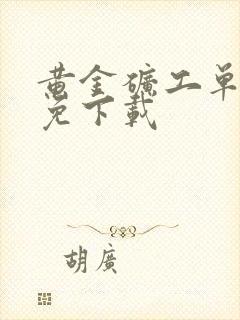 黄金礦工单
免下載
胡廣